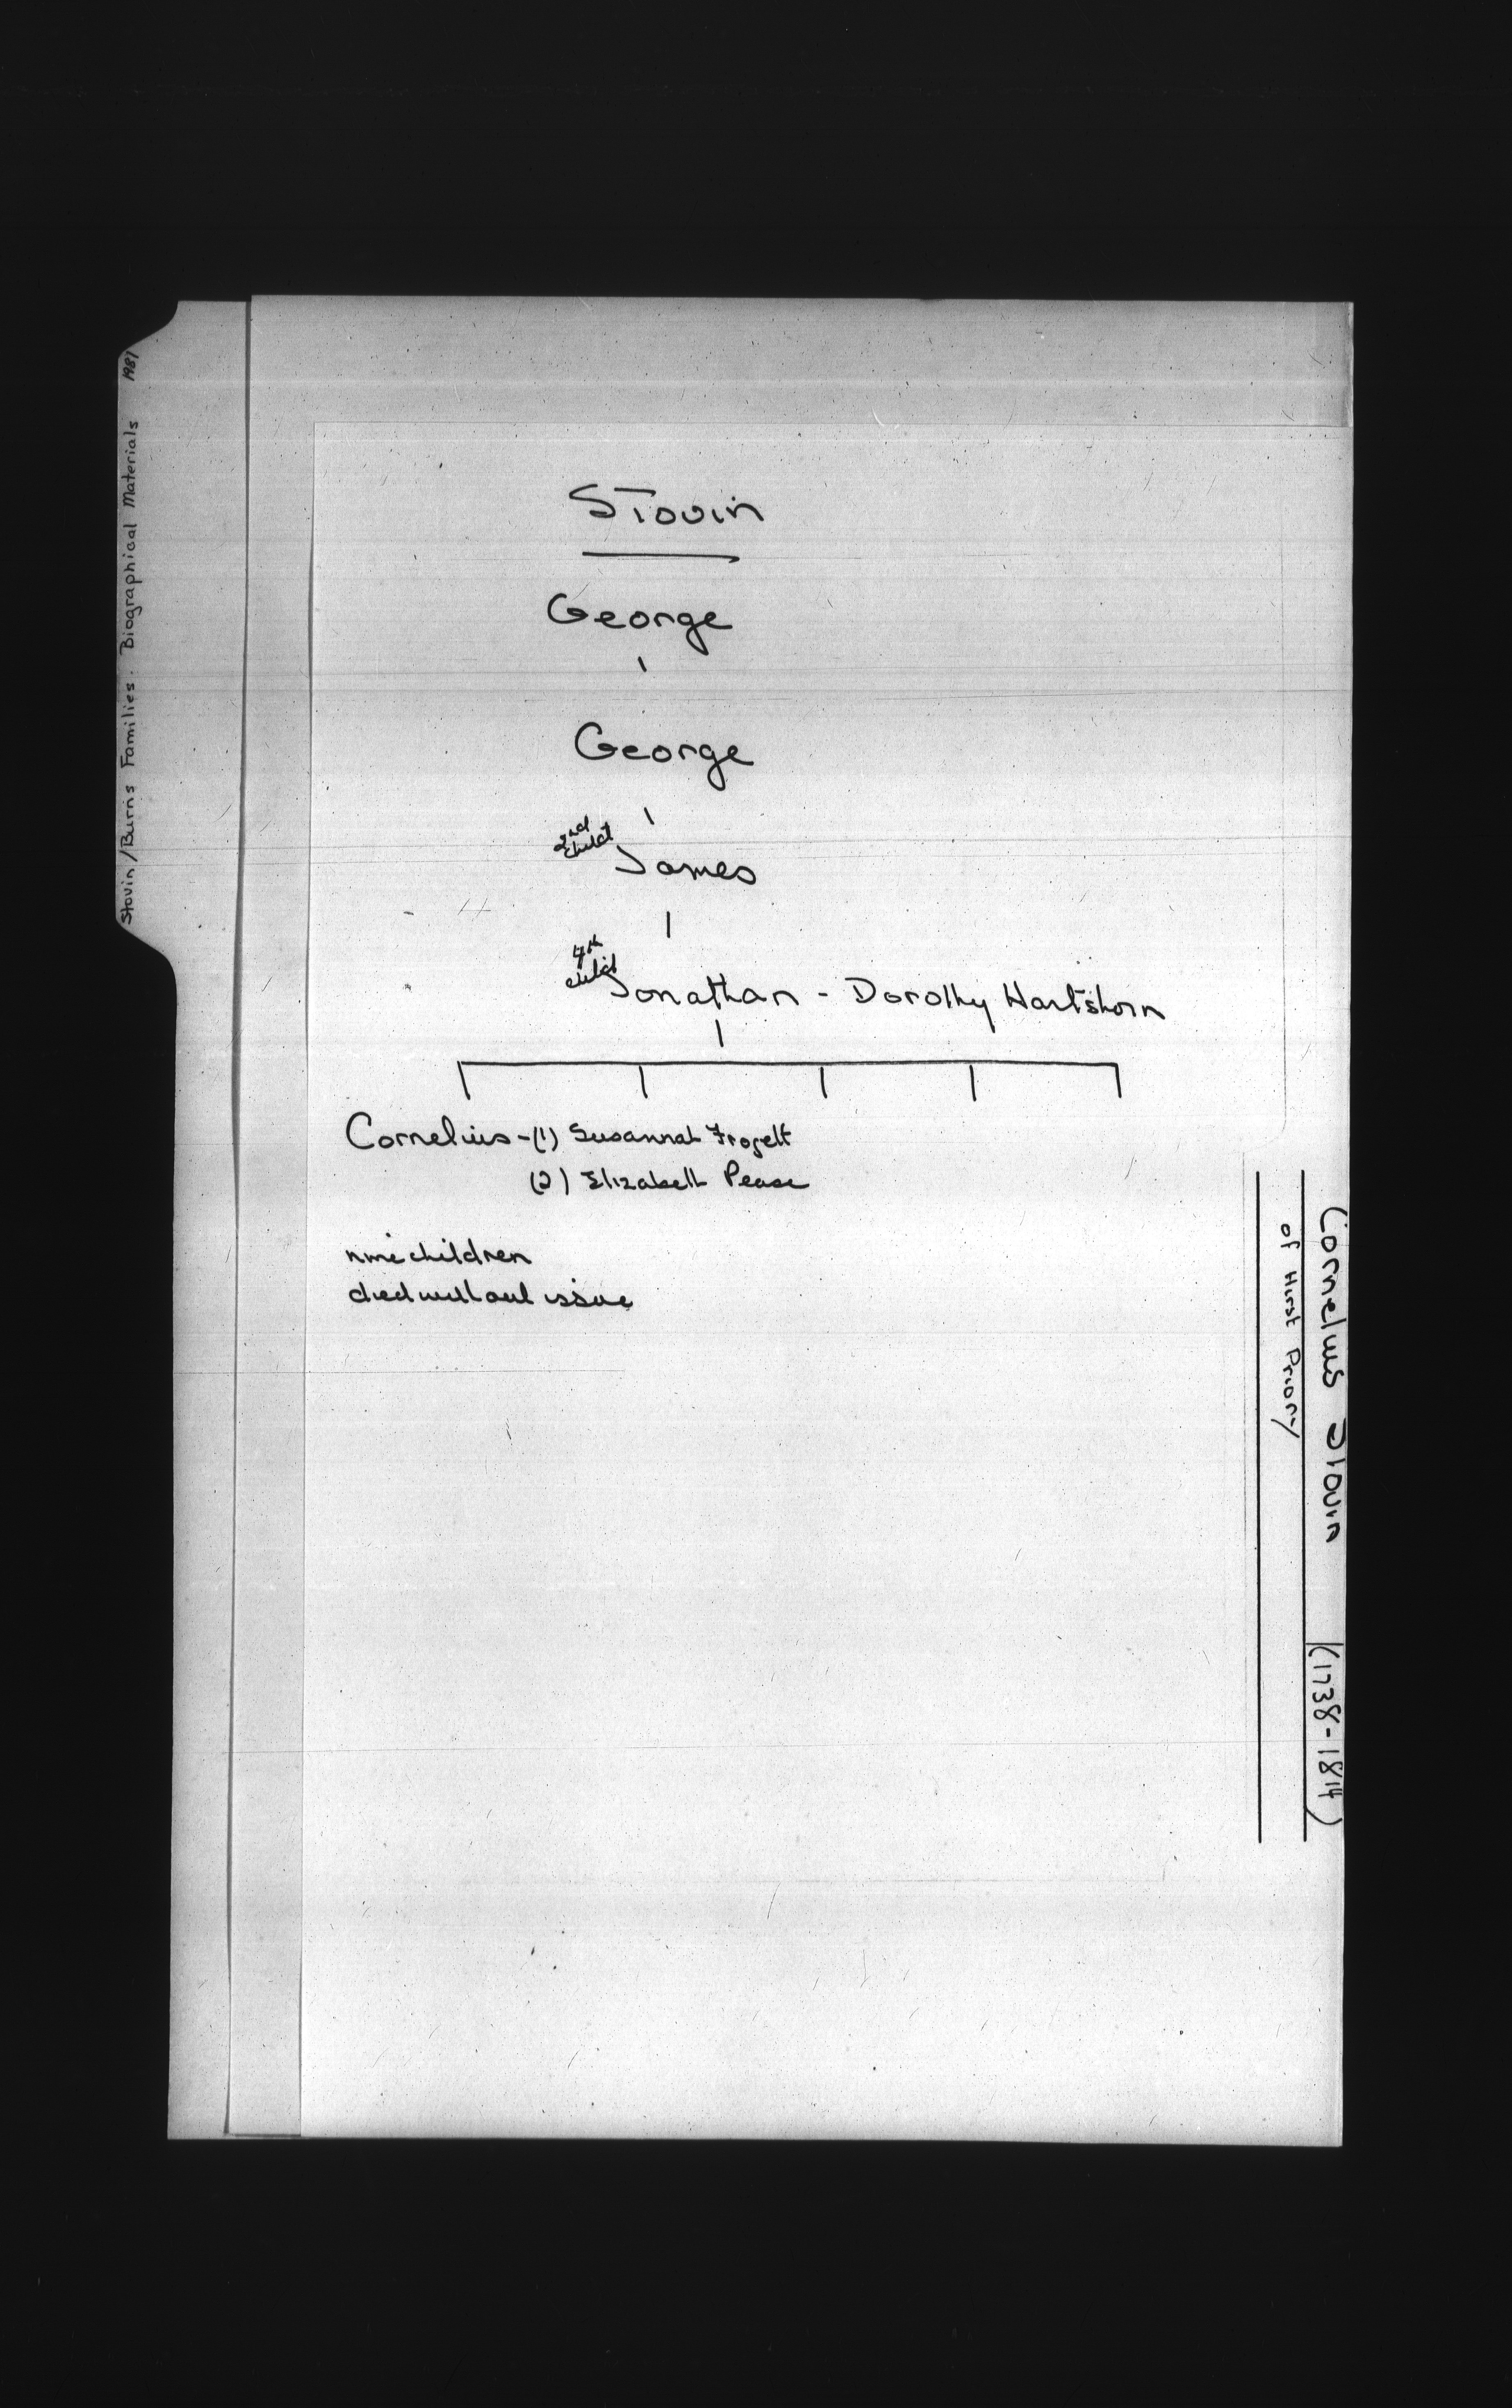 Stovin/Burns Families: Biographical Materials 1981
Stovin
George
George
2nd child
James
4th child
Jonathan - Dorothy Hartshorn
Cornelius - (1) Susannah Frogett
(2) Elizabeth Pease
nine children
died without issue
Cornelius Stovin (1738-1814)
of Hirst Priory